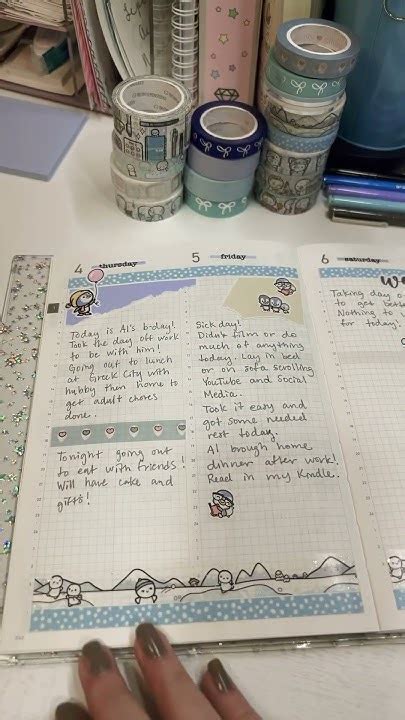 4 thursday
Today is Al's b-day!
Took the day off work
to be with him!
Going out to lunch
at Greek City with
hubby then home to
get adult chores
done.
Tonight going out
to eat with friends!
Will have cake and
gifts!
5 friday
Sick day!
Didnt film or do
much of anything
today. Lay in bed
or on sofa scrolling
YouTube and Social
Media.
Took it easy and
got some needed
rest today.
Al brough home
dinner after work!
Read in my Kindle.
6 saturday
Taking day o
to get
Nothing
for today!